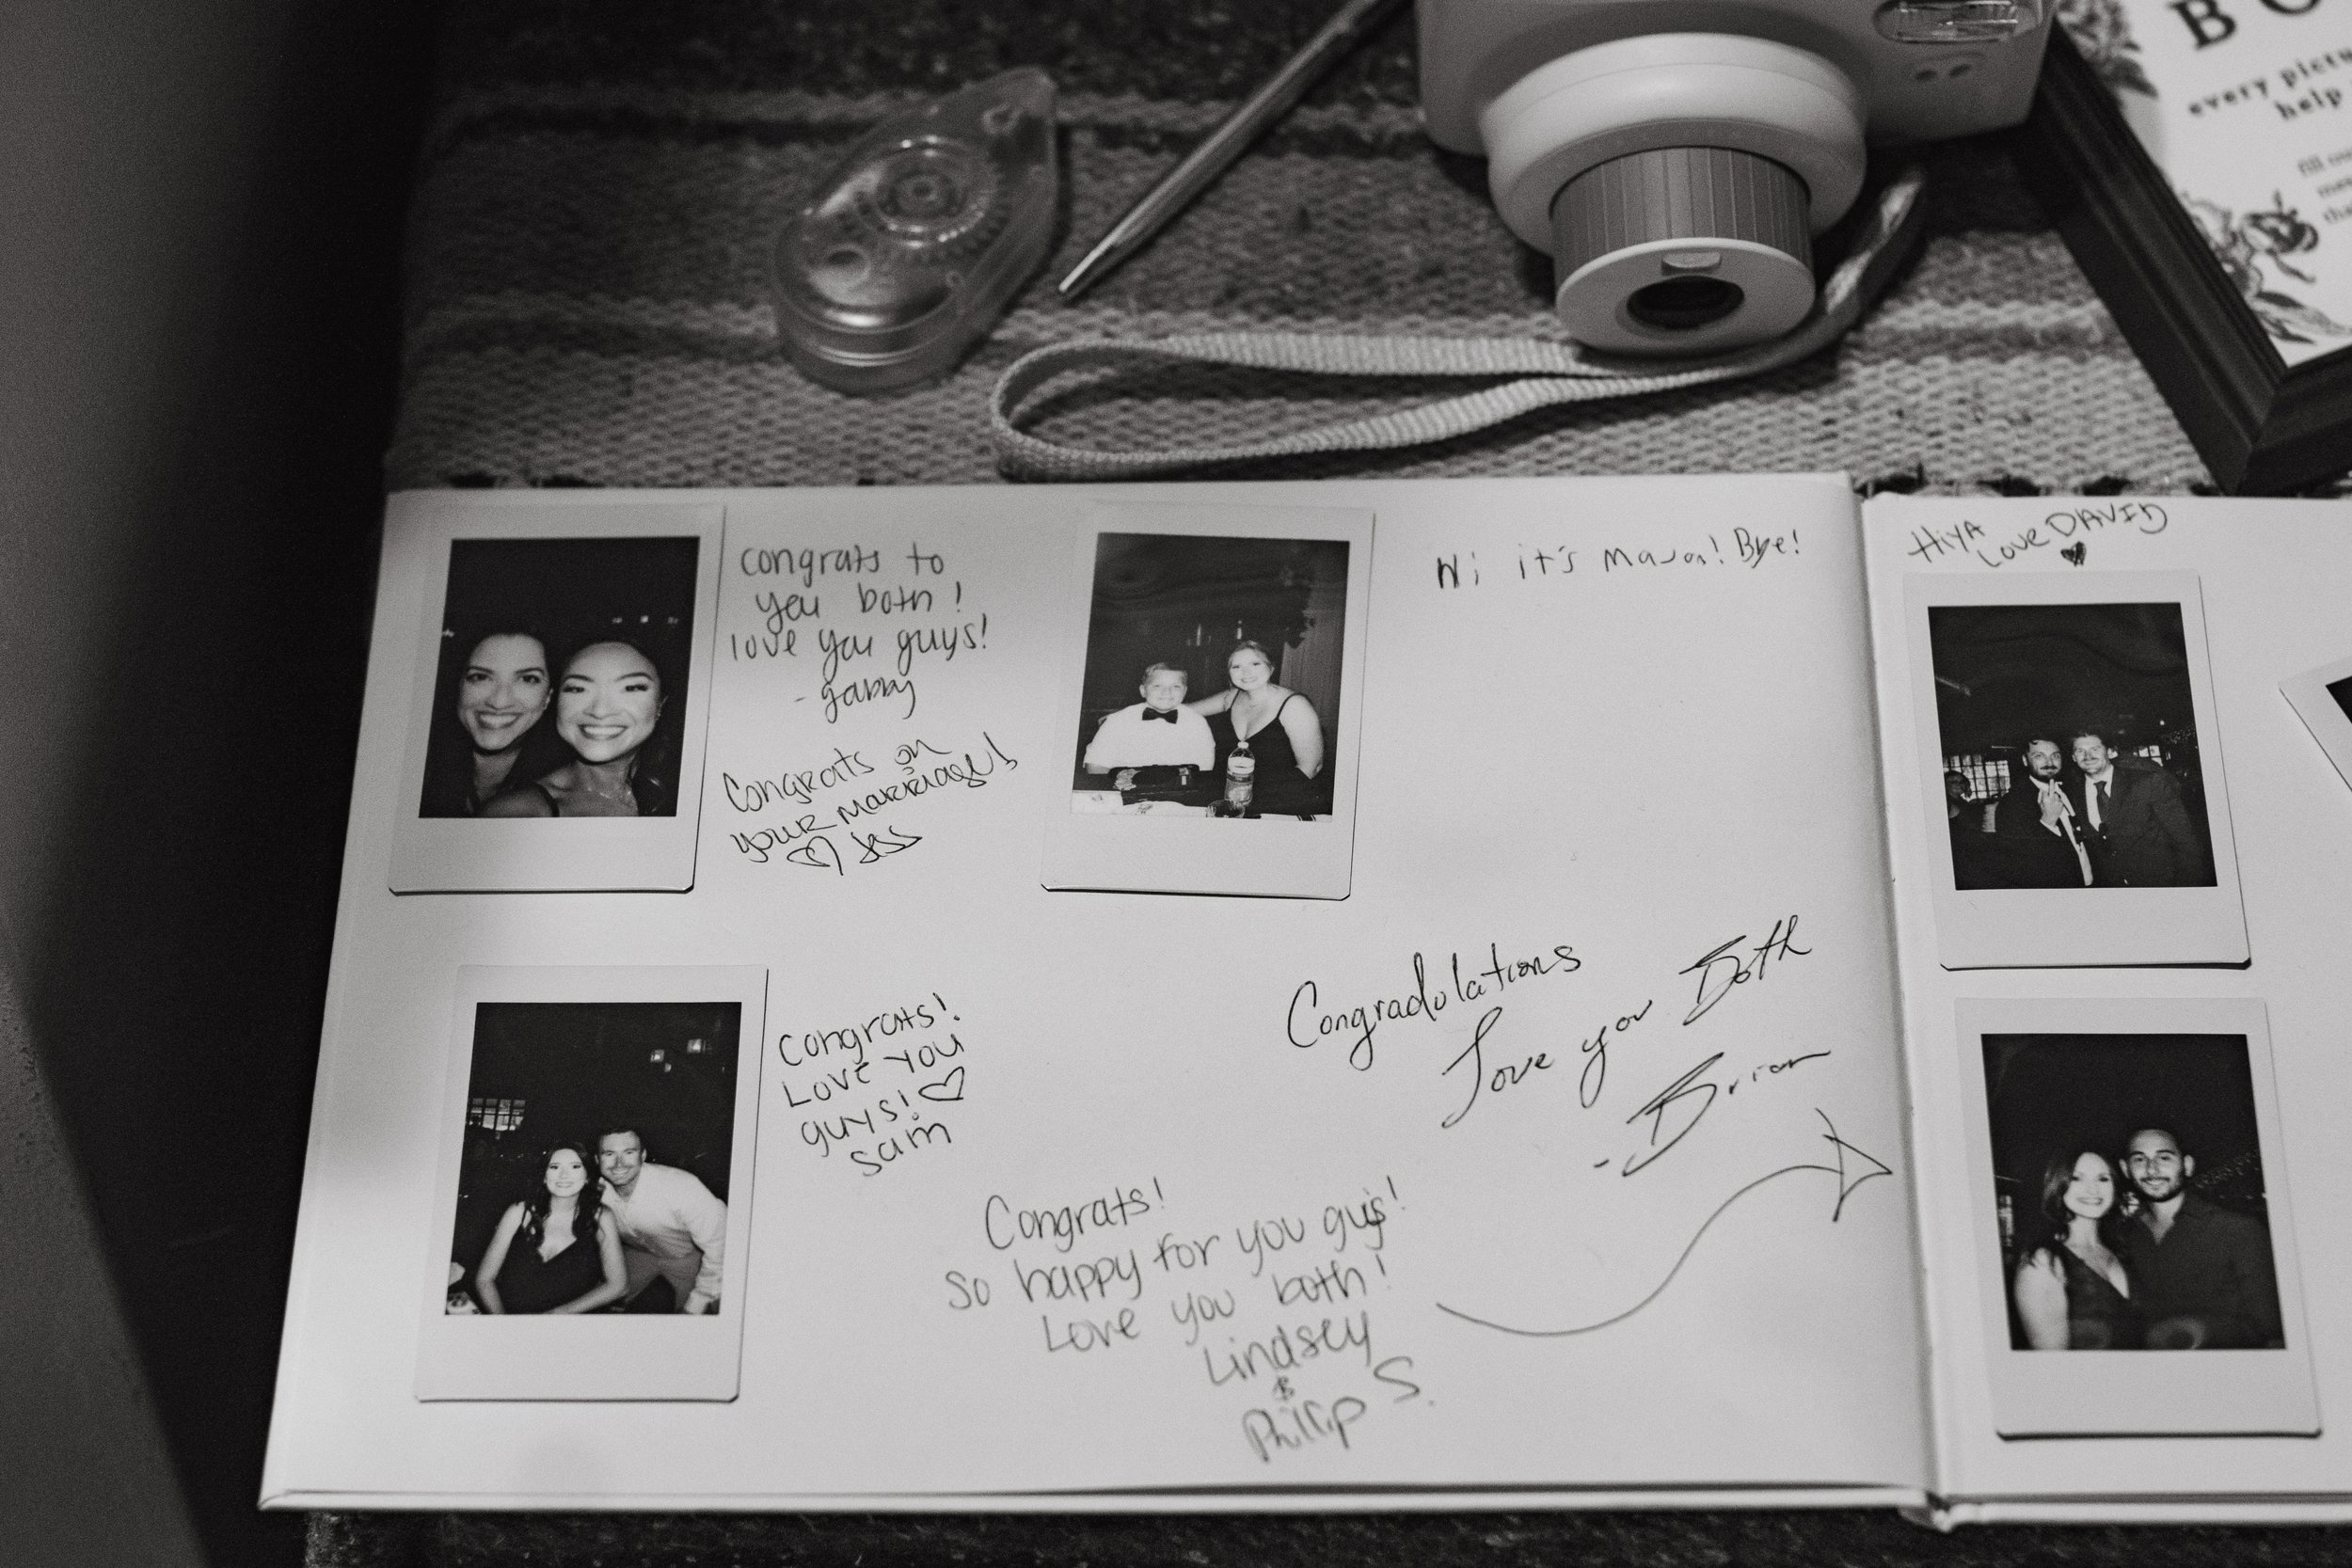 BO
every pictu
help
fill ou
congrats to
you both!
love you guys!
- gabby
Congrats on
your marriage!
♡ Jess
Hi it's Mason! Bye!
HiYA
Love DAVID
♥
Congrats!
Love you
guys! ♡
Sam
Congradulations
Love you Both
- Brian
Congrats!
So happy for you guys!
Love you both!
Lindsey
&
Phillip S.